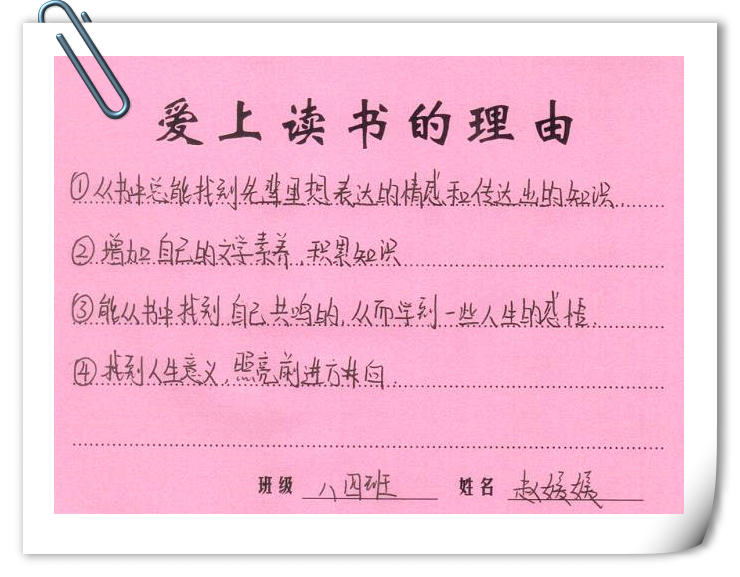 爱上读书的理由
①从书中总能找到先辈里想表达的情感和传达出的知识.
②增加自己的文学素养,积累知识
③能从书中找到自己共鸣的,从而学到一些人生的感悟.
④找到人生意义,照亮前进方向.
班级 八四班 姓名 赵媛媛